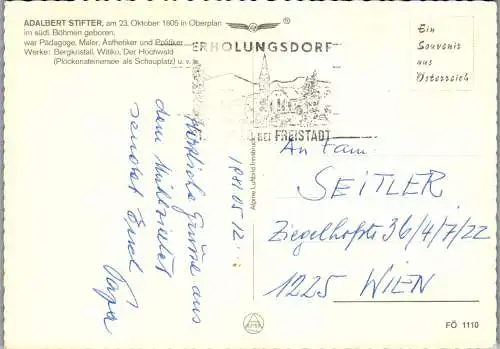 ADALBERT STIFTER, am 23. Oktober 1805 in Oberplan
im südl. Böhmen geboren,
war Pädagoge, Maler, Ästhetiker und Politiker
Werke: Bergkristall, Witiko, Der Hochwald
(Plöckensteinersee als Schauplatz) u. v. a.
ERHOLUNGSDORF
BEI FREISTADT
1981 05 12
Ein
Souvenir
aus
Österreich
Herzliche Grüße aus
dem Mühlviertel
sendet Euch
Papa
Alpine Luftbild Innsbruck
An Fam.
SEITLER
Ziegelhofstr. 36/4/7/22
1225 WIEN
FÖ 1110